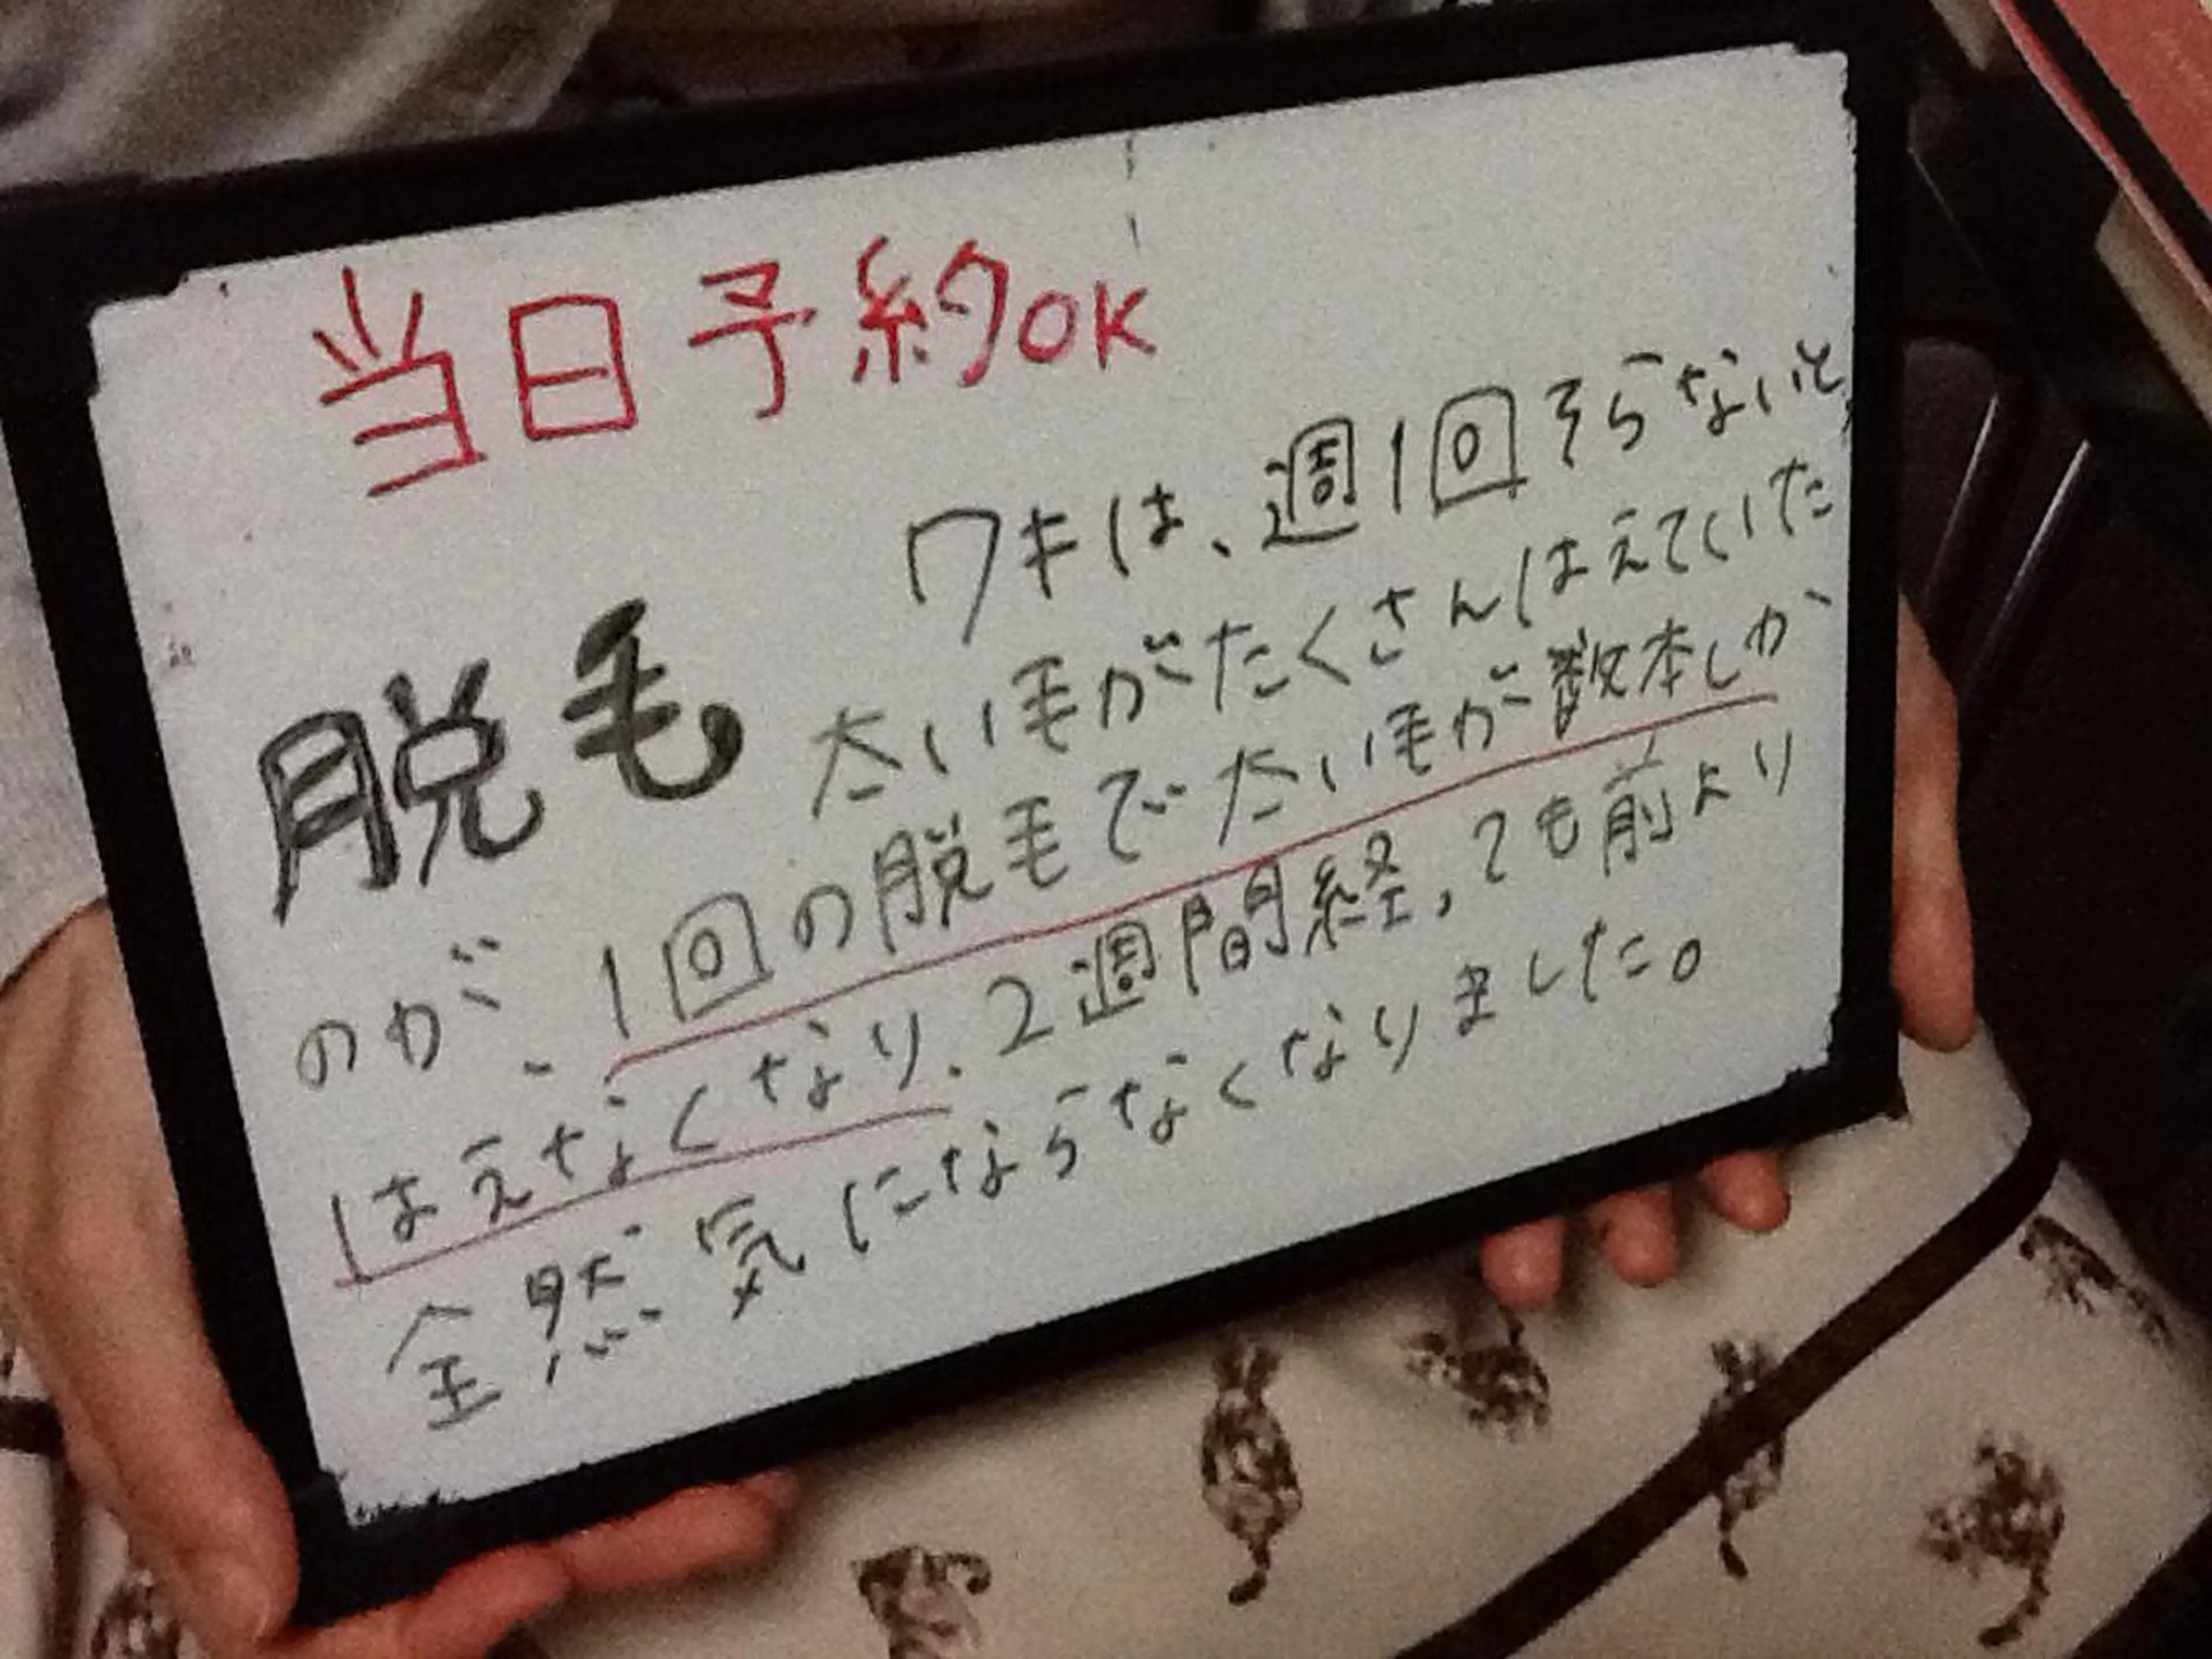 当日予約OK
脱毛
ワキは、週1回そらないと
太い毛がたくさんはえていた
のが、1回の脱毛で太い毛が数本しか
はえなくなり、2週間経っても前より
全然気にならなくなりました。